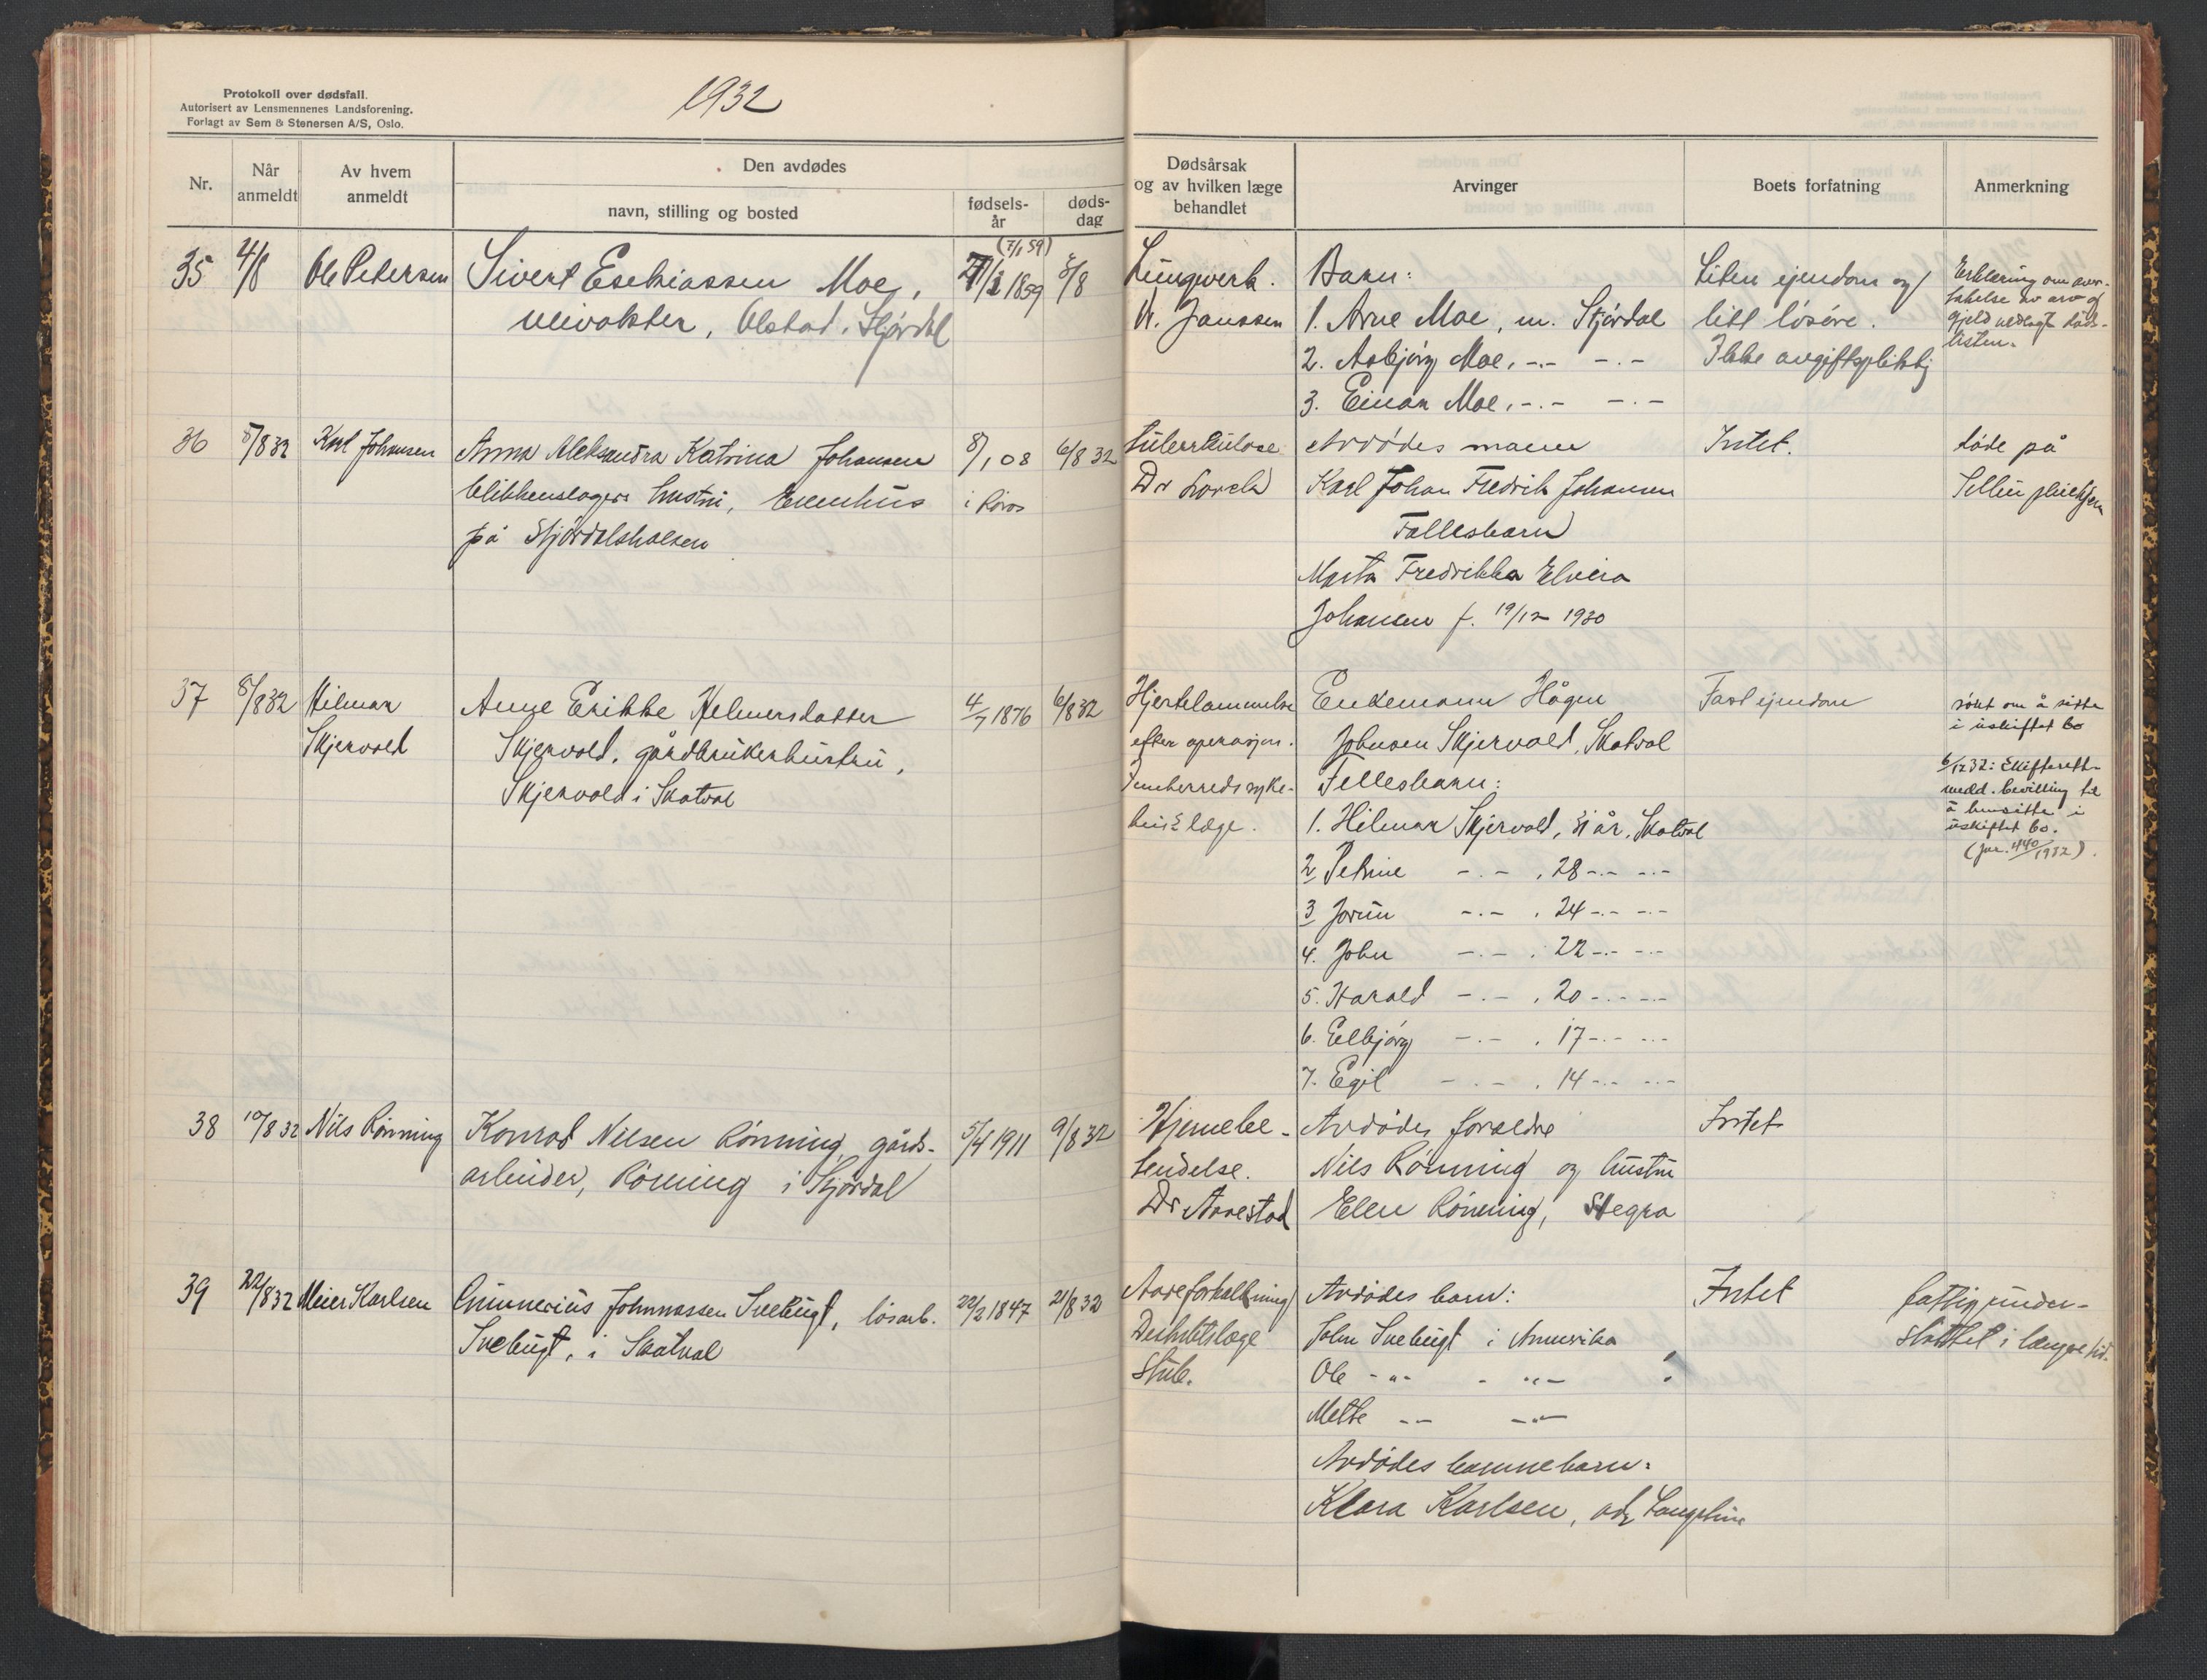 Protokoll over dødsfall.
Autorisert av Lensmennenes Landsforening.
Forlagt av Sem & Stenersen A/S, Oslo.
1932
Nr.
Når anmeldt
Av hvem anmeldt
Den avdødes
navn, stilling og bosted
fødsels-år
døds-dag
Dødsårsak og av hvilken læge behandlet
Arvinger
Boets forfatning
Anmerkning
35 4/8 Ole Petersen
Sivert Esekiassen Moe,
veivokter, Olstad, Stjørdal
(7/1 59)
1859
3/8
Lungverk.
Janssen
Barn:
1. Arne Moe, n. Stjørdal
2. Asbjørg Moe, -.- -.-
3. Einar Moe, -.- -.-
Liten ejendom og
litt løsøre.
Ikke avgiftspliktig
Erklæring om over-
takelse av arv og
gjeld vedlagt døds-
listen.
36 8/8 32 Karl Johansen
Anna Aleksandra Katrina Johansen
blikkenslagers hustru, Evenhus
på Stjørdalshalsen
8/1 08
i Røros
6/8 32
tuberkulose
Dr Lorck
Avdødes mann
Karl Johan Fredrik Johansen
Fællesbarn
Marta Fredrikka Elvira
Johansen f. 19/12 1930
Intet.
døde på
Selbu pleiehjem
37 8/8 32 Hilmar
Skjervold
Anne Erikke Helmersdatter
Skjervold, gårdbrukerhustru,
Skjervold i Skatval
4/7 1876
6/8 32
Hjertelammelse
efter operasjon.
Innherreds syke-
hus læge.
Enkemann Hågen
Johnsen Skjervold, Skatval
Fellesbarn:
1. Hilmar Skjervold, 31 år, Skatval
2 Petrine -.- , 28 -.- -.-
3 Jorun -.- , 24 -.- -.-
4. John -.- , 22 -.- -.-
5. Harald -.- , 20 -.- -.-
6. Eelbjørg -.- , 17 -.- -.-
7. Egil -.- , 14 -.- -.-
Fast ejendom
søkt om å sitte
i uskiftet bo
6/12 32: Skifterett
medd. bevilling til
å hensitte i
uskiftet bo.
(jnr. 440/1932).
38 10/8 32 Nils Rønning
Konrad Nilsen Rønning, gårds-
arbeider, Rønning i Stjørdal
5/4 1911
9/8 32
Hjernebe-
tendelse.
Dr Aarestad
Avdødes foreldre
Nils Rønning og hustru
Ellen Rønning, Hegra
Intet
39 22/8 32 Meier Karlsen
Gunnerius Johnnassen Svebugt, løsarb.
Svebugt, i Skatval
22/2 1847
21/8 32
Aareforkalkning
Distriktslæge
Stub.
Avdødes barn:
John Svebugt i Amerika
Ole -"- - -"-
Mette -- -"-
Avdødes barnebarn:
Klara Karlsen, adr Langstein
Intet
fattigunder-
støttet i længere tid.